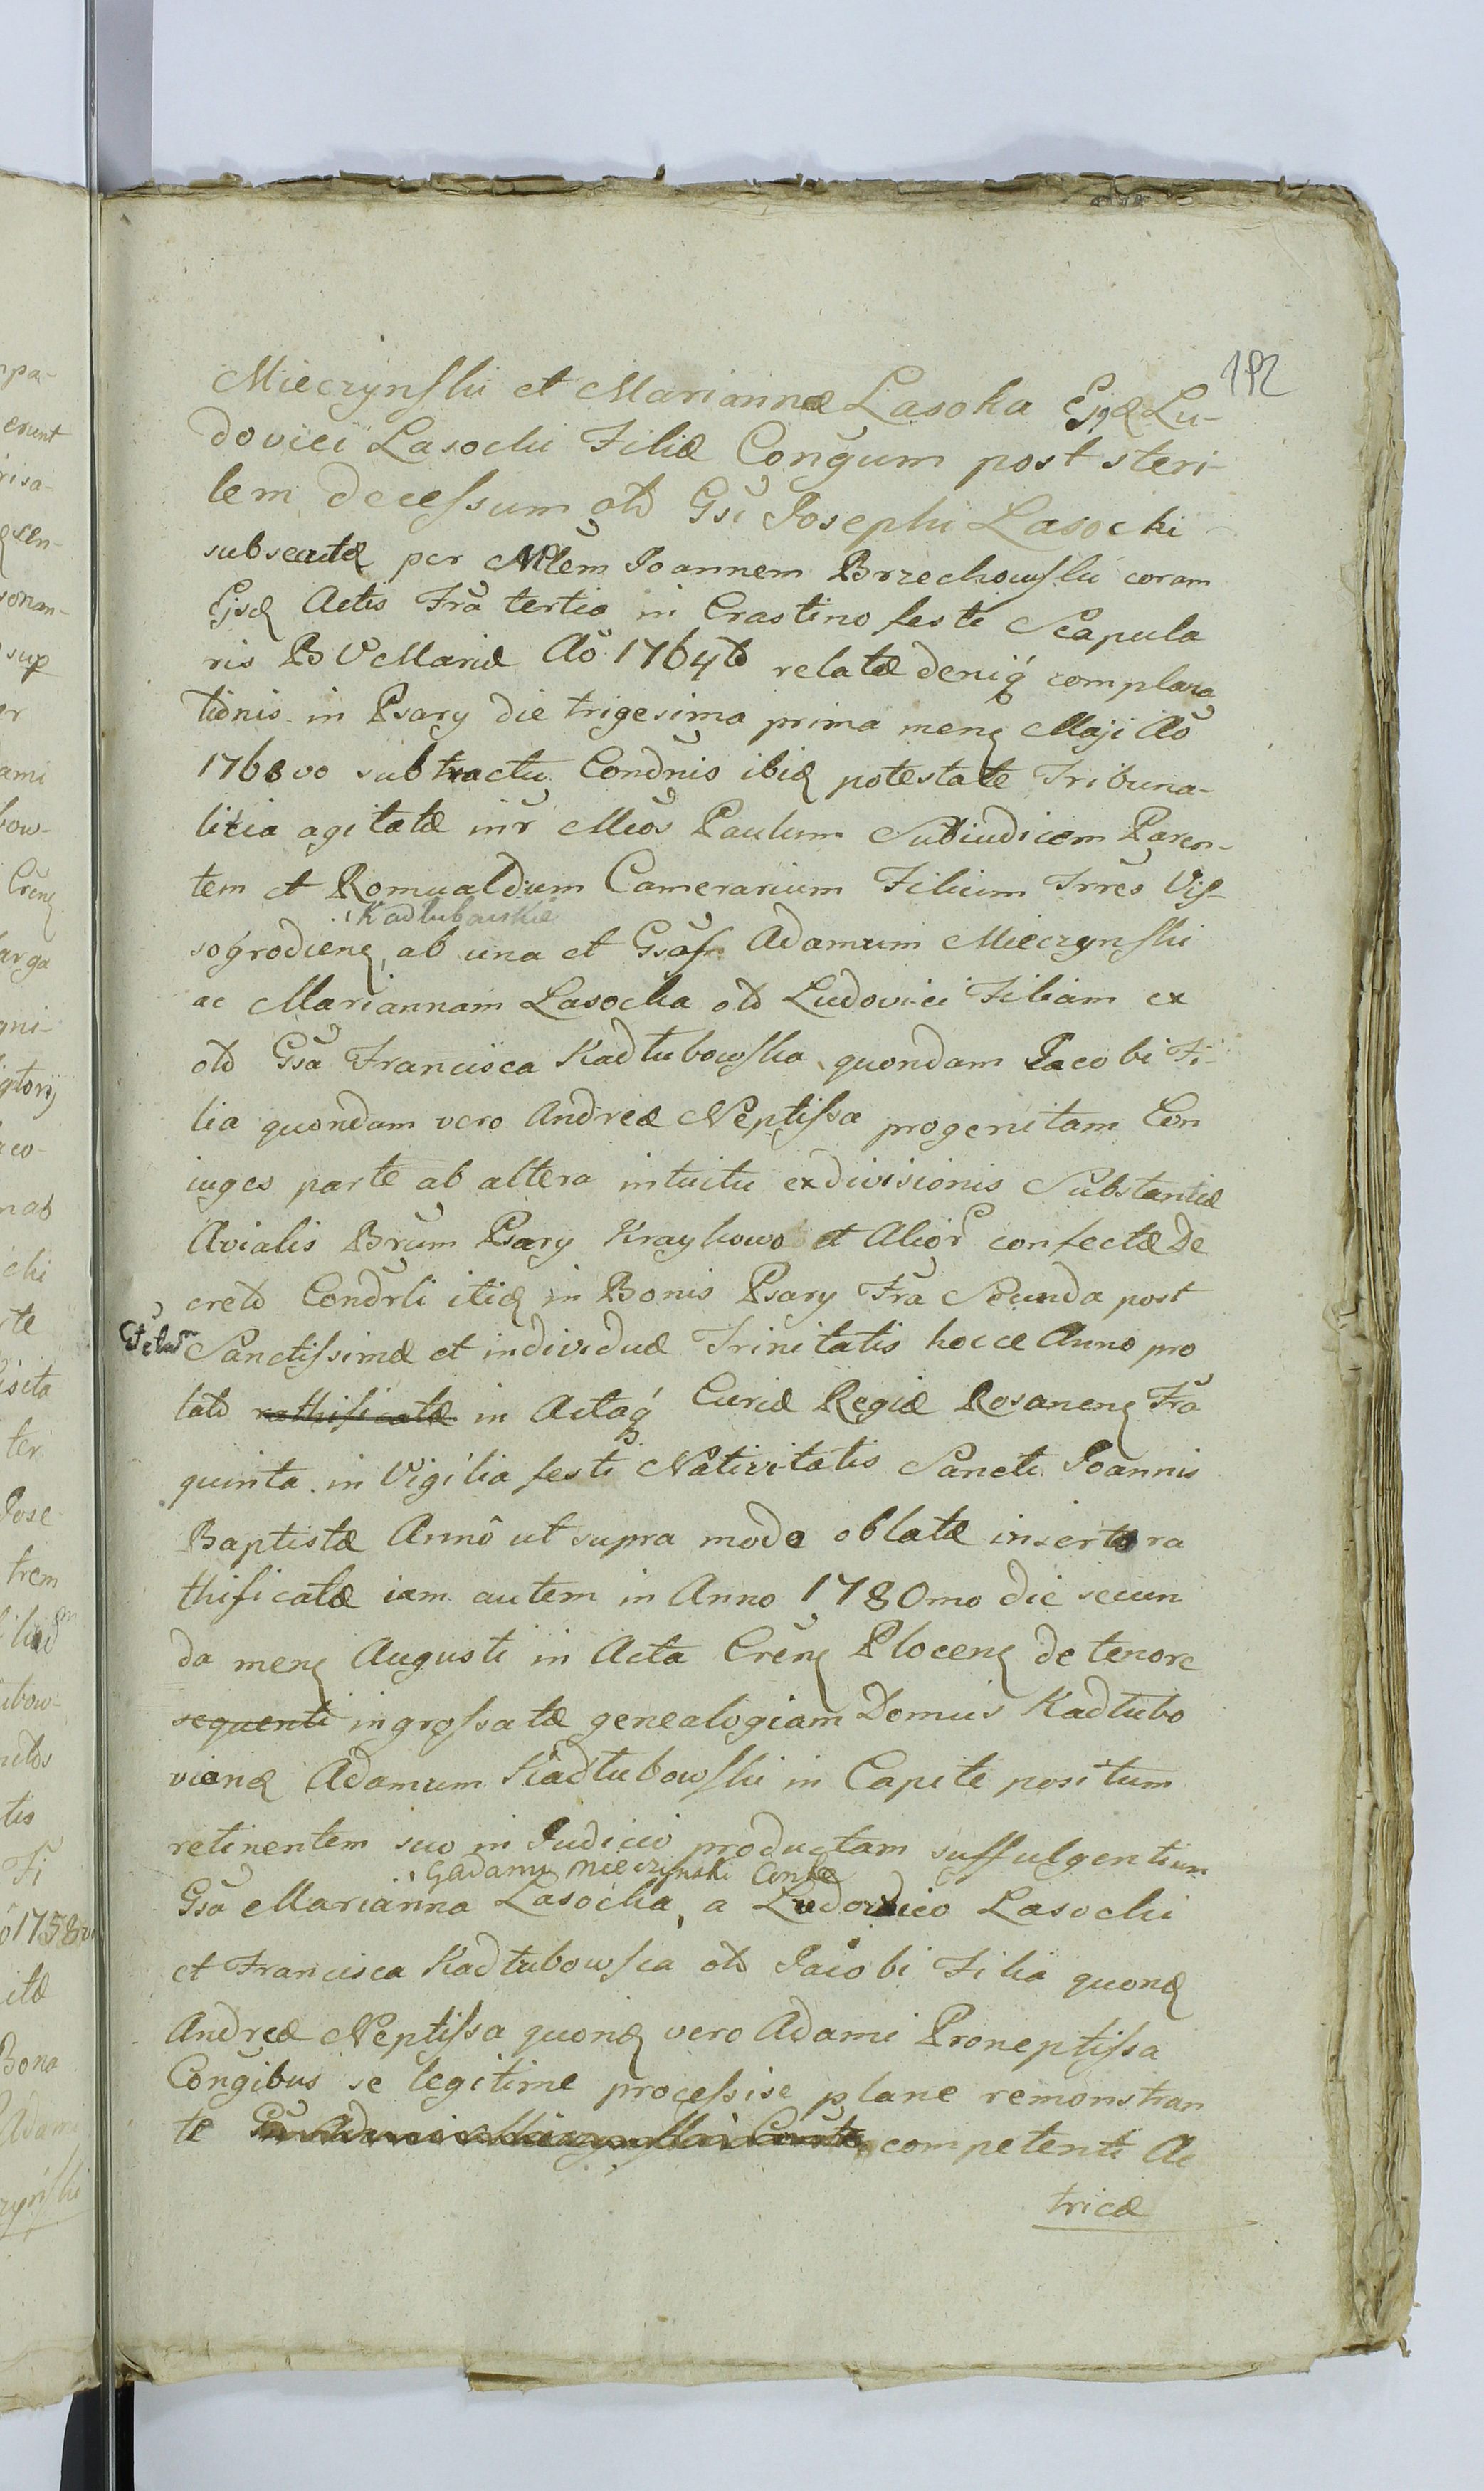 192
Mieczynski et Mariannæ Lasocka Ejqd Lu-
dovici Lasocki Filiæ Conğum post steri-
lem decessum olo Gsi Josephi Lasocki
subsecutæ per Mlem Joannem Brzechowski coram
Ejsd Actis Fra tertia in Crastino festi Scapula
ris B V Mariæ Ao 1764to relatæ deniq complana
tionis in Psary die trigesima prima menς Maji Ao
1768vo subtractu Condnis ibid potestate Tribuna-
litia agitatæ inr Mcos Paulum Subiudicem Paren-
tem et Romualdum Camerarium Filium Trres Vis-
Kadlubowskie
sogrodienς, ab una et Gsas Adamum Mieczynski
ac Mariannam Lasocka olo Ludovici Filiam ex
olo Gsa Francisca Kadłubowska quondam Jacobi Fi-
lia quondam vero Andreæ Neptissa progenitam Con
iuges parte ab altera intuitu exdivisionis Substantiæ
Avialis Brum Psary Kraykowo et Alior confectæ De
creto Condrli itid in Bonis Psary Fra Secunda post
Sanctissimæ et individuæ Trinitatis hocce Anno pro
lato rathificatæ in Actaq Curiæ Regiæ Rosanenς Fra
quinta in Vigilia festi Nativitatis Sancti Joannis
Baptistæ Annô ut supra modo oblatæ inserto ra
thificatæ iam autem in Anno 1780mo die secun
da menς Augusti in Acta Crenς Plocenς de tenore
sequenti ingrossatæ genealogiam Domus Kadłubo
vianæ Adamum Kadłubowski in Capite positum
retinentem suo in Judicio productam suffulgentium
G Adamy Mieczynski Conte
Gsa Marianna Lasocka, a Ludovico Lasocki
et Francisca Kadłubowsca olo Jacobi Filia quond
Andreæ Neptissa quond vero Adami Proneptissa
Conğibus se legitime processise plane remonstran
te competenti Ac
tricæ